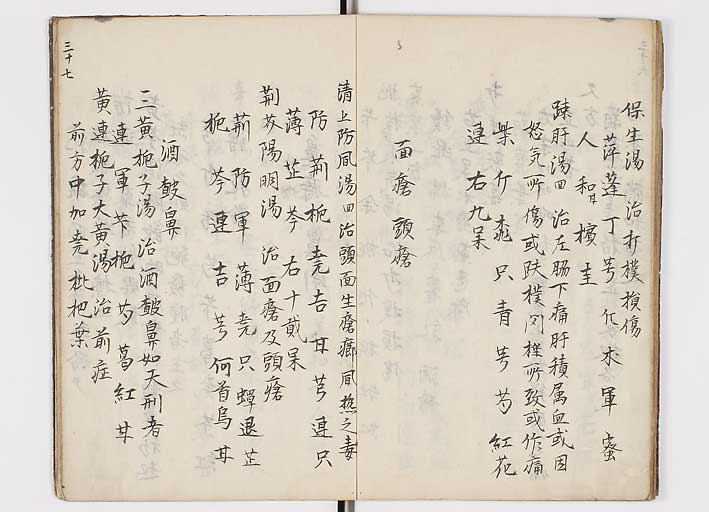 保生湯 治打撲損傷
萍蓬丁芎 木軍蜜
人 桂
疎肝湯四 治左脇下痛肝積属血或因
怒気所傷或跌撲閃挫所致或作痛
柴 桃只青芎芍紅花
連 右九味
面瘡 頭瘡
清上防風湯四 治頭面生瘡癤風熱之毒
防荆梔 吉甘芎連只
薄芷芩 右十貳味
荆芥陽明湯 治面瘡及頭瘡
荆防軍薄 只蟬退芷
梔芩連吉芎何首烏甘
酒皶鼻
二黄梔子湯 治酒皶鼻如天刑者
連軍芐梔芍葛紅甘
黄連梔子大黄湯 治前症
前方中加 枇杷葉
三十七